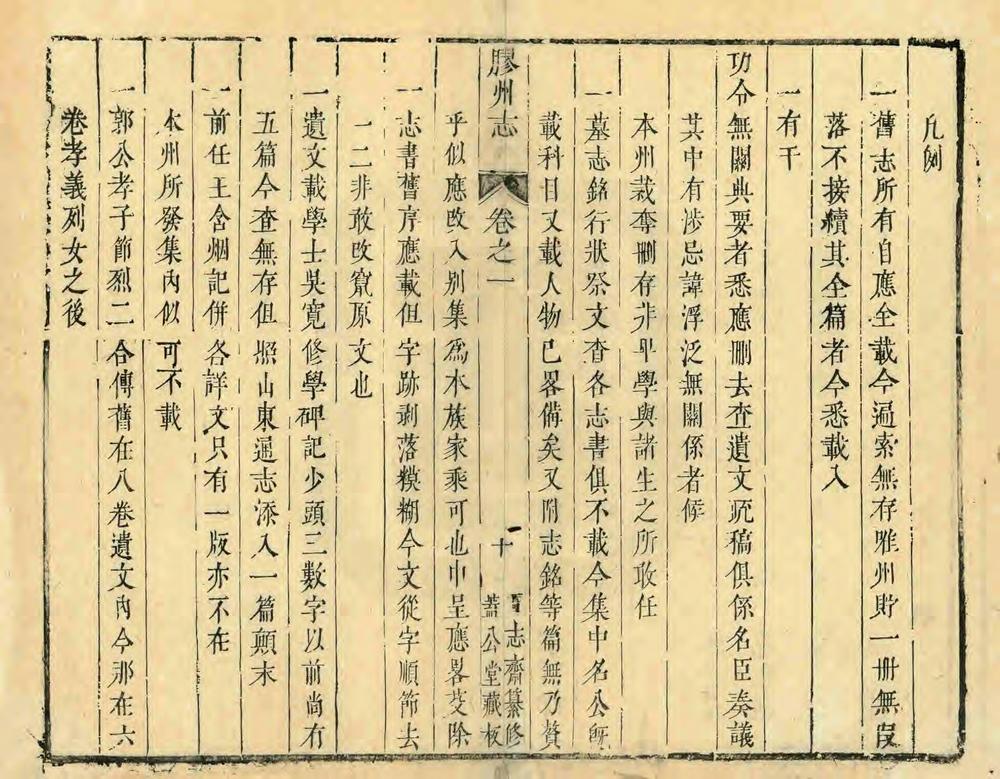 凡例
一舊志所有自應全載今遍索無存唯州貯一冊無段
落不接續其全篇者今悉載入
一有干
功令無關典要者悉應刪去查遺文疏稿俱係名臣奏議
其中有涉忌諱浮泛無關係者候
本州裁奪刪存非早學與諸生之所敢任
一墓志銘行狀祭文查各志書俱不載今集中名公
載科目又載人物已畧備矣又附志銘等篇無乃贅
膠州志
卷之一
十
志齋纂修
蓋公堂藏板
乎似應改入別集為本族家乘可也中呈應畧芟除
一志書舊序應載但字跡剥落糢糊今文從字順節去
一二非敢改竄原文也
一遺文載學士吳寬修學碑記少頭三數字以前尚有
五篇今查無存但照山東通志添入一篇顛末
一前任王舍烟記併各詳文只有一版亦不在
本州所發集內似可不載
一郭公孝子節烈二合傳舊在八卷遺文內今那在六
卷孝義列女之後